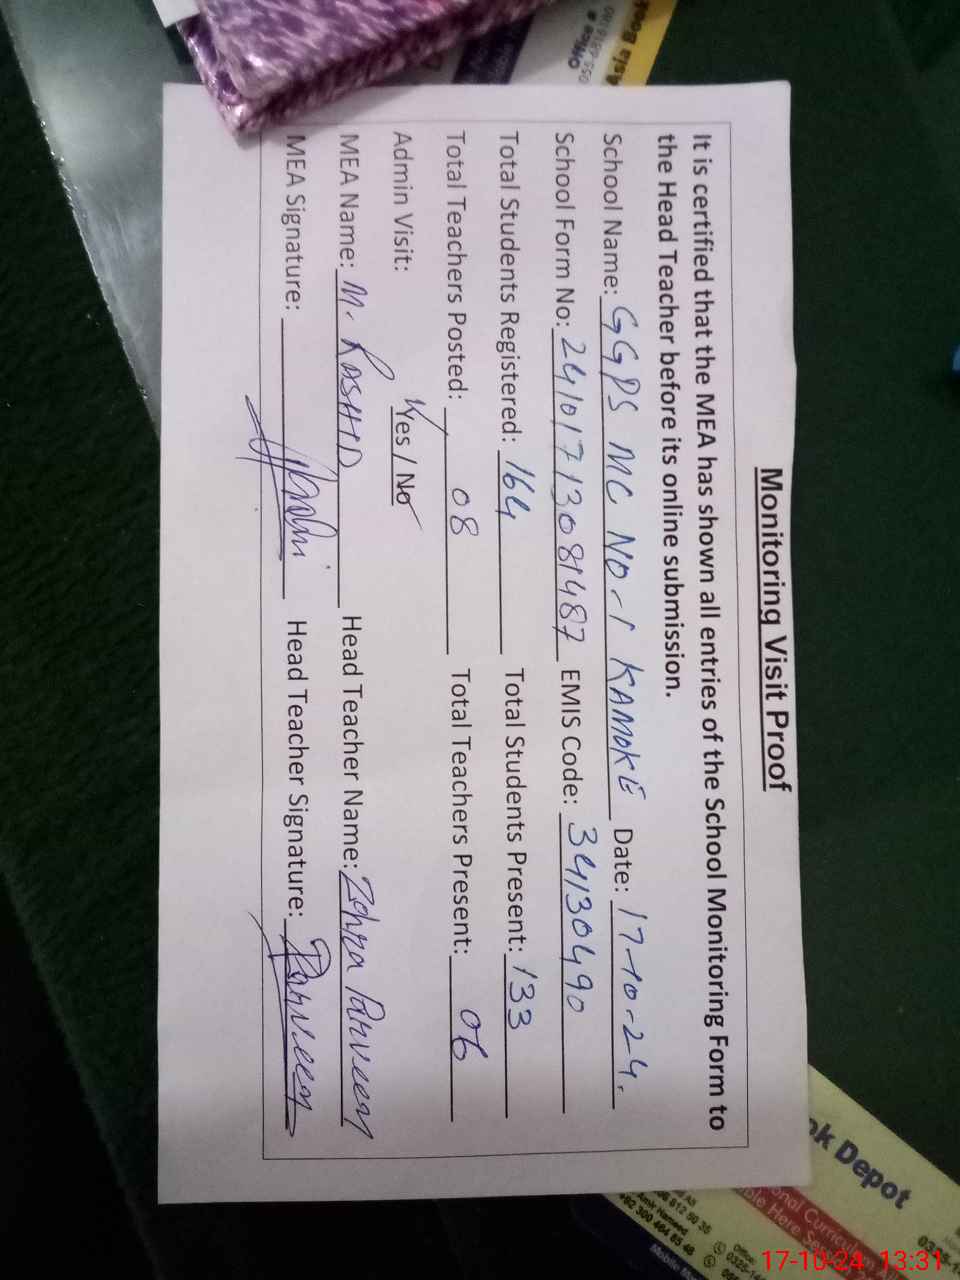 Monitoring Visit Proof
It is certified that the MEA has shown all entries of the School Monitoring Form to
the Head Teacher before its online submission.
School Name: GGPS MC NO-1 KAMOKE Date: 17-10-24.
School Form No: 24101713081487 EMIS Code: 34130490
Total Students Registered: 164 Total Students Present: 133
Total Teachers Posted: 08 Total Teachers Present: 06
Admin Visit: Yes / No
MEA Name: M. RASHID Head Teacher Name: Zohra Parveen
MEA Signature: Head Teacher Signature: Parveen
ok Depot
Mobile
17-10-24 13:31